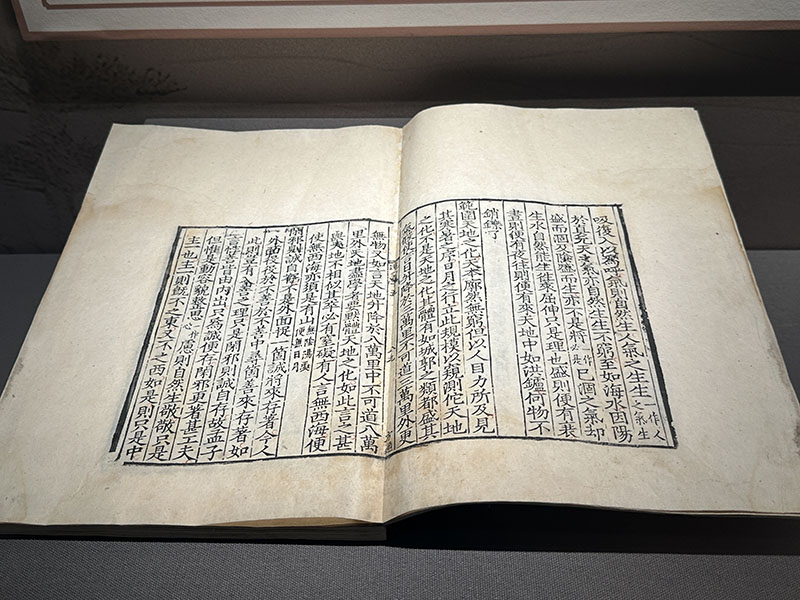 吸復入以為呼氣則自然生人氣之生生一作人之氣生
於真元天之氣亦自然生生不窮至如海水因陽
盛而涸及陰盛而生亦不是將已涸之氣却
生水自然能生往來屈伸只是理也盛則便有衰
晝則便有夜往則便有來天地中如洪鑪何物不
銷鑠了
範圍天地之化天本廓然無窮但以人目力所及見
其寒暑之序日月之行立此規模以窺測佗天地
之化不是天地之化其體有如城郭之類都盛其
氣假使言日升降於三萬里不可道三萬里外更
無物又如言天地升降於八萬里中不可道八萬
里外天地盡學者要默體天地之化如此言之甚
與天地不相似其卒必有窒礙有人言無西海便
使無西海亦須是有山無陰陽處便無日月
閑邪則誠自存不是外面捉一箇誠將來存著今人
外面役役於不善於不善中尋箇善來存著如
此則豈有入善之理只是閑邪則誠自存故孟子
言性善皆由內出只為誠便存閑邪更著甚工夫
但惟是動容貌整思慮則自然生敬敬只是
主一也主一則既不之東又不之西如是則只是中